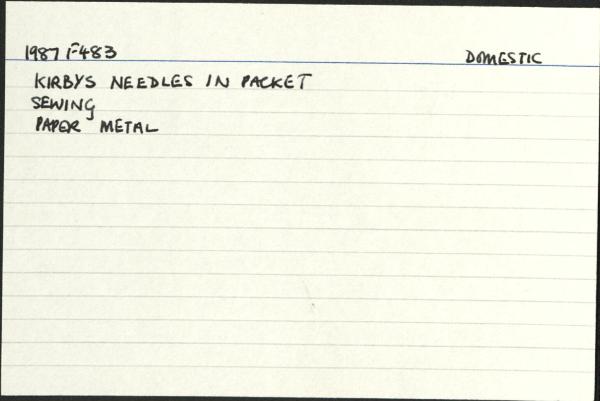 1987 F483 DOMESTIC
KIRBYS NEEDLES IN PACKET
SEWING
PAPER METAL